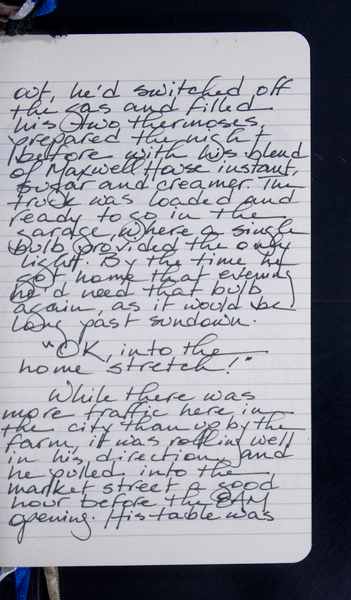 out, he'd switched off
the gas and filled
his two thermoses,
prepared the night
before with his blend
of Maxwell House instant,
sugar and creamer. The
truck was loaded and
ready to go in the
garage, where a single
bulb provided the only
light. By the time he
got home that evening
he'd need that bulb
again, as it would be
long past sundown.
"OK, into the
home stretch!"
While there was
more traffic here in
the city than up by the
farm, it was rolling well
in his direction, and
he pulled into the
market street a good
hour before the 8AM
opening. His table was